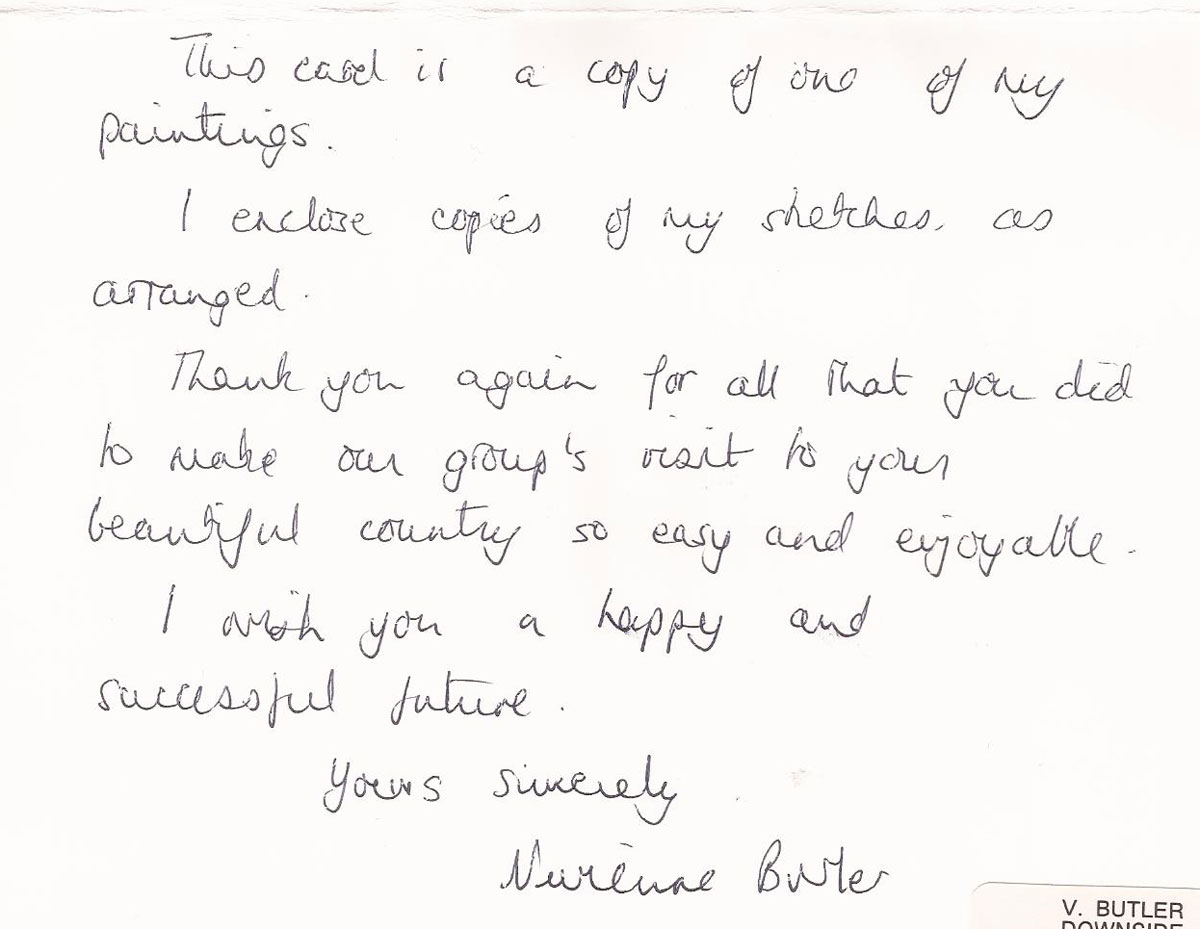 This card is a copy of one of my
paintings.
I enclose copies of my sketches, as
arranged.
Thank you again for all that you did
to make our group's visit to your
beautiful country so easy and enjoyable.
I wish you a happy and
successful future.
Yours sincerely
Butler
V. BUTLER
DOWNSIDE